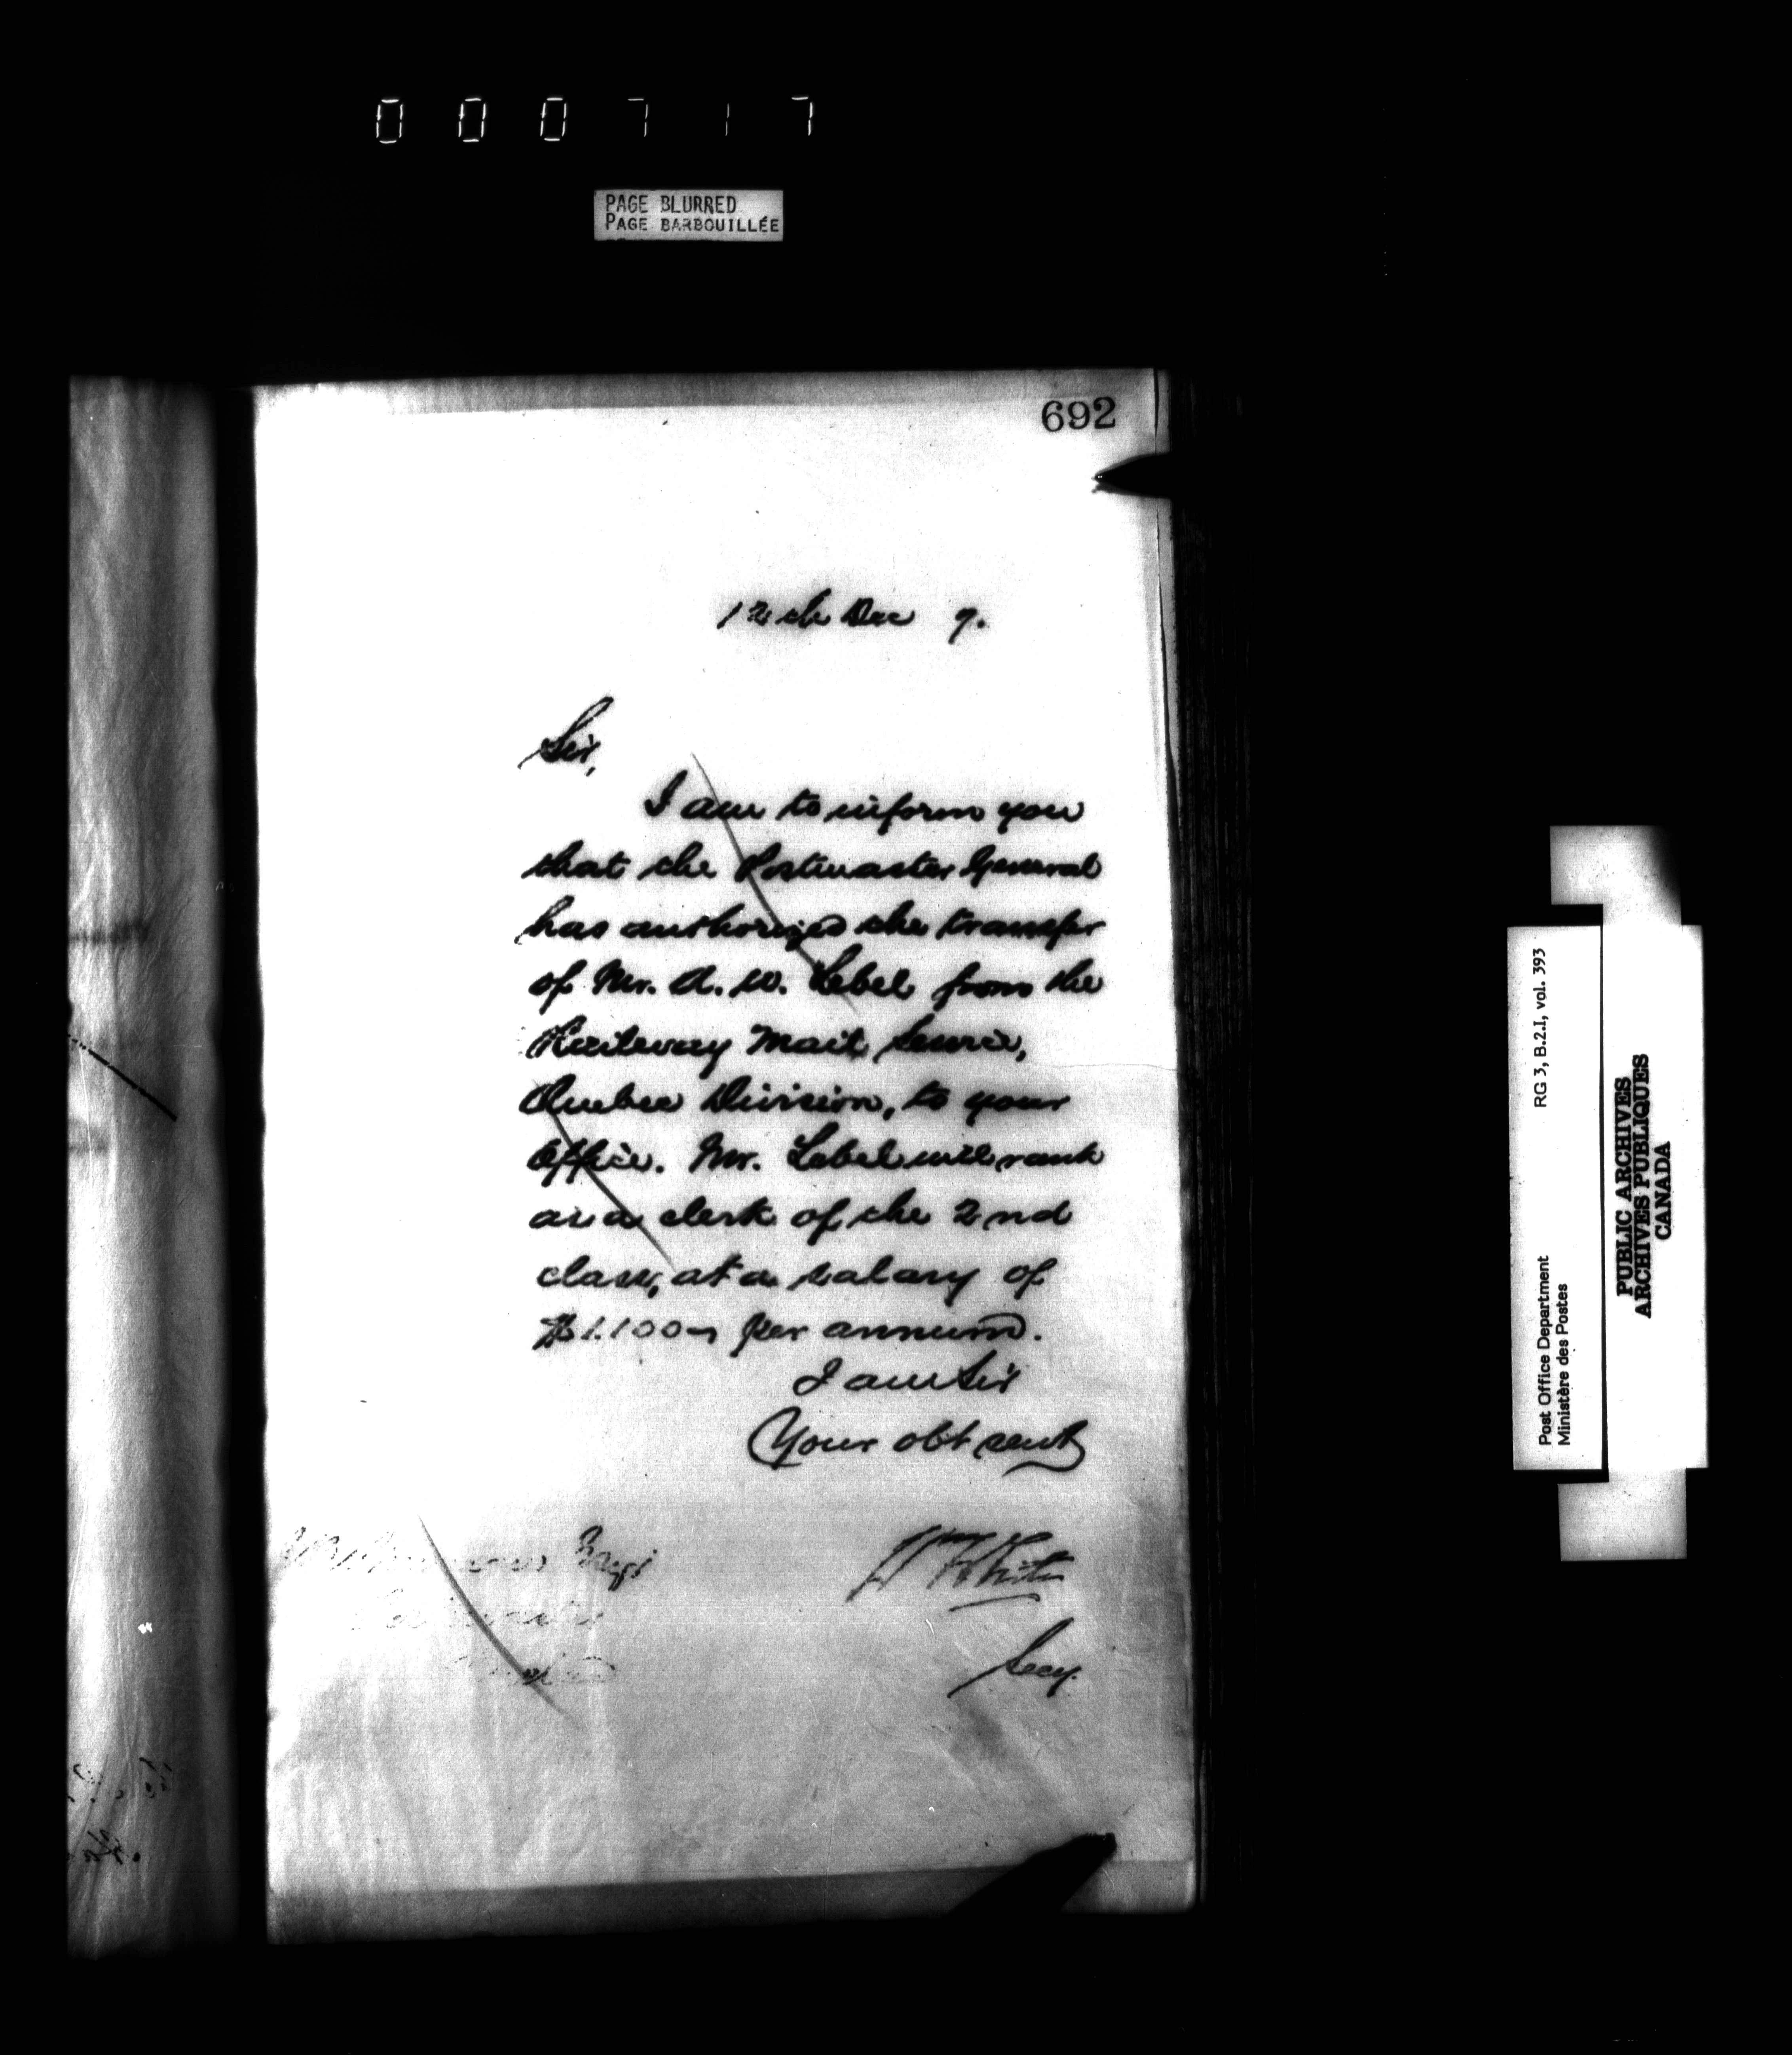 000717
PAGE BLURRED
PAGE BARBOUILLÉE
692
12th Dec 7.
Sir,
I am to inform you
that the Postmaster General
has authorized the transfer
of Mr. A. W. Lebel from the
Railway Mail Service,
Quebec Division, to your
Office. Mr. Lebel will rank
as a clerk of the 2nd
class, at a salary of
$1.100 per annum.
I am Sir
Your obt servt
Wm White
Secy.
RG 3, B.2.I, vol. 393
Post Office Department
Ministère des Postes
PUBLIC ARCHIVES
ARCHIVES PUBLIQUES
CANADA